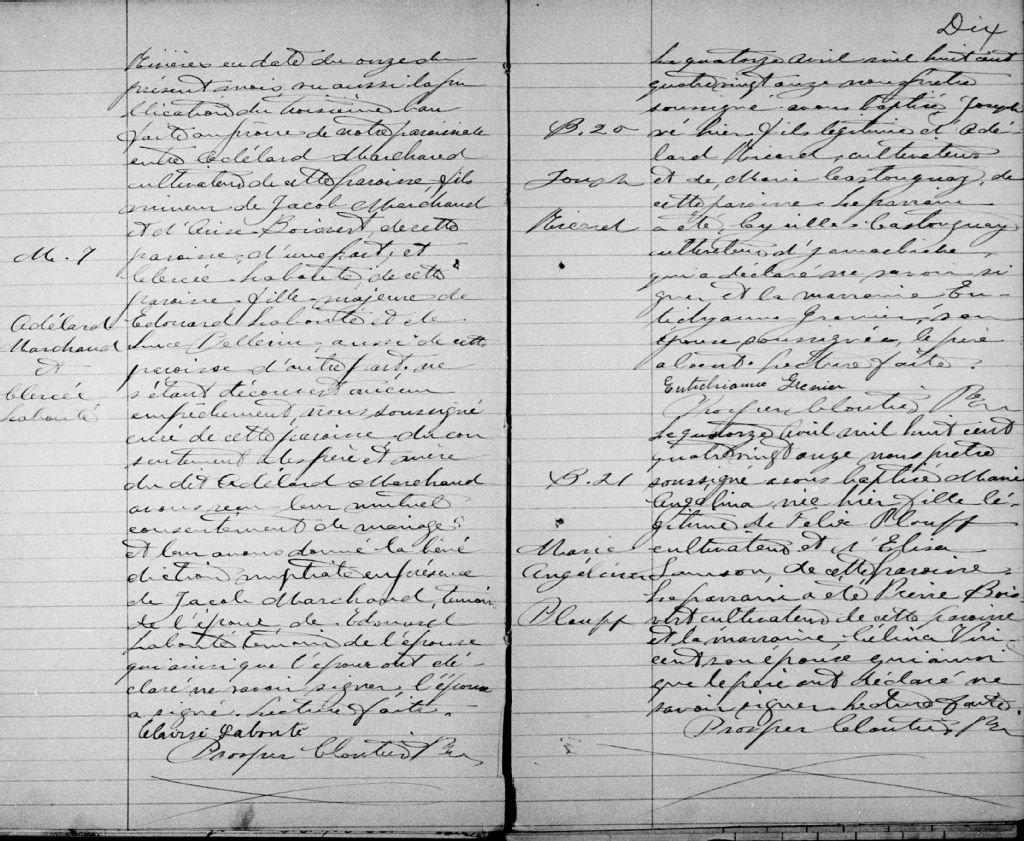 Rivières en date du onze du
présent mois, vu aussi la pu
blication du troisième ban
faite au prone de notre paroissiale
entre Adélard Marchand
cultivateur de cette paroisse, fils
mineur de Jacob Marchand
et d'Elise Boisvert, de cette
M. 7
paroisse, d'une part, et
Clercée Labonté, de cette
paroisse fille majeure de
Adélard
Edouard Labonté et de
Marchand
Luce Pellerin aussi de cette
et
paroisse d'autre part, ne
Clercée
s'étant découvert aucun
Labonté
empêchement, nous soussigné
curé de cette paroisse, du con
sentement des père et mère
du dit Adélard Marchand
avons reçu leur mutuel
consentement de mariage
et leur avons donné la béné
diction nuptiale en présence
de Jacob Marchand, témoin
de l'époux, de Edouard
Labonté témoin de l'épouse
qui ainsi que l'époux ont dé-
claré ne savoir signer, l'épouse
a signé. Lecture faite.
Clairsé Labonté
Prosper Cloutier Ptre
Dix
Le quatorze avril mil huit cent
quatrevingt onze nous prêtre
soussigné avons baptisé Joseph
B. 20
né hier, fils légitime et d'Adé
lard Ricard, cultivateur
Joseph
et de Marie Castonguay, de
cette paroisse. Le parrain
Ricard
a été Cyville Castonguay
cultivateur d'Yamachiche,
qui a déclaré ne savoir si
gner et la marraine Eu-
tichyanne Grenier, son
épouse soussignée, le père
absent. Lecture faite.
Eutichianne Grenier
Prosper Cloutier Ptre
Le quatorze avril mil huit cent
quatrevingt onze nous prêtre
B. 21
soussigné avons baptisé Marie
Angélina née hier fille lé-
gitime de Felix Plouff
Marie
cultivateur et d'Elisa
Angélina
Lamson, de cette paroisse.
Le parrain a été Pierre Bois
Plouff
vert cultivateur de cette paroisse
et la marraine Celina Vin
cent son épouse qui ainsi
que le père ont déclaré ne
savoir signer. Lecture faite.
Prosper Cloutier Ptre